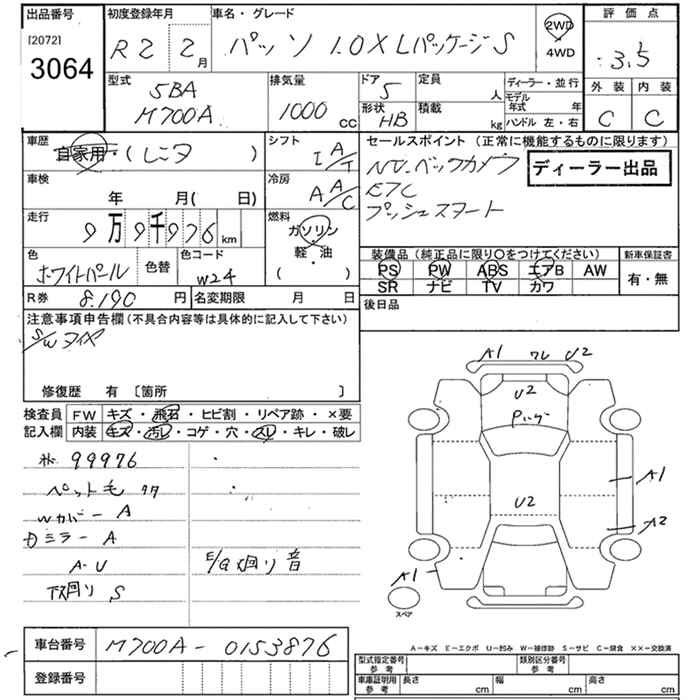 出品番号 初度登録年月 車名・グレード 評価点
[2072] 3064 R2 2月 パッソ 1.0X Lパッケージ S 2WD 4WD 3.5
型式 5BA M700A 排気量 1000 cc ドア 5 形状 HB 定員 人 積載 kg ディーラー・並行 モデル年式 年 ハンドル 左・右 外装 内装 C C
車歴 自家用・(レンタ) シフト I A/T
セールスポイント (正常に機能するものに限ります)
NV.バックカメラ ディーラー出品
ETC
プッシュスタート
車検 年 月( 日) 冷房 A A/C
走行 9万9千976 km 燃料 ガソリン・軽・油 ( )
色 ホワイトパール 色替 色コード W24
装備品 (純正品に限り○をつけてください) 新車保証書
PS PW ABS エアB AW 有・無
SR ナビ TV カワ
R券 8.190 円 名変期限 月 日
後日品
注意事項申告欄 (不具合内容等は具体的に記入して下さい)
S/Wタイヤ
修復歴 有 〔箇所 〕
検査員 FW キズ・飛石・ヒビ割・リペア跡・×要
記入欄 内装 キズ・汚レ・コゲ・穴・スレ・キレ・破レ
99976
ペット毛
Wカバー A
ミラー A
A・U E/G廻リ音
下廻リ S
A1 ワレ U2
U2
U2
A1
A2
A1
スペア
A-キズ E-エクボ U-凹ミ W-補修跡 S-サビ C-腐食 ××-交換済
車台番号 M700A-0153876
登録番号
型式指定番号 参考 類別区分番号 参考
車庫証明用 参考 長さ cm 幅 cm 高さ cm